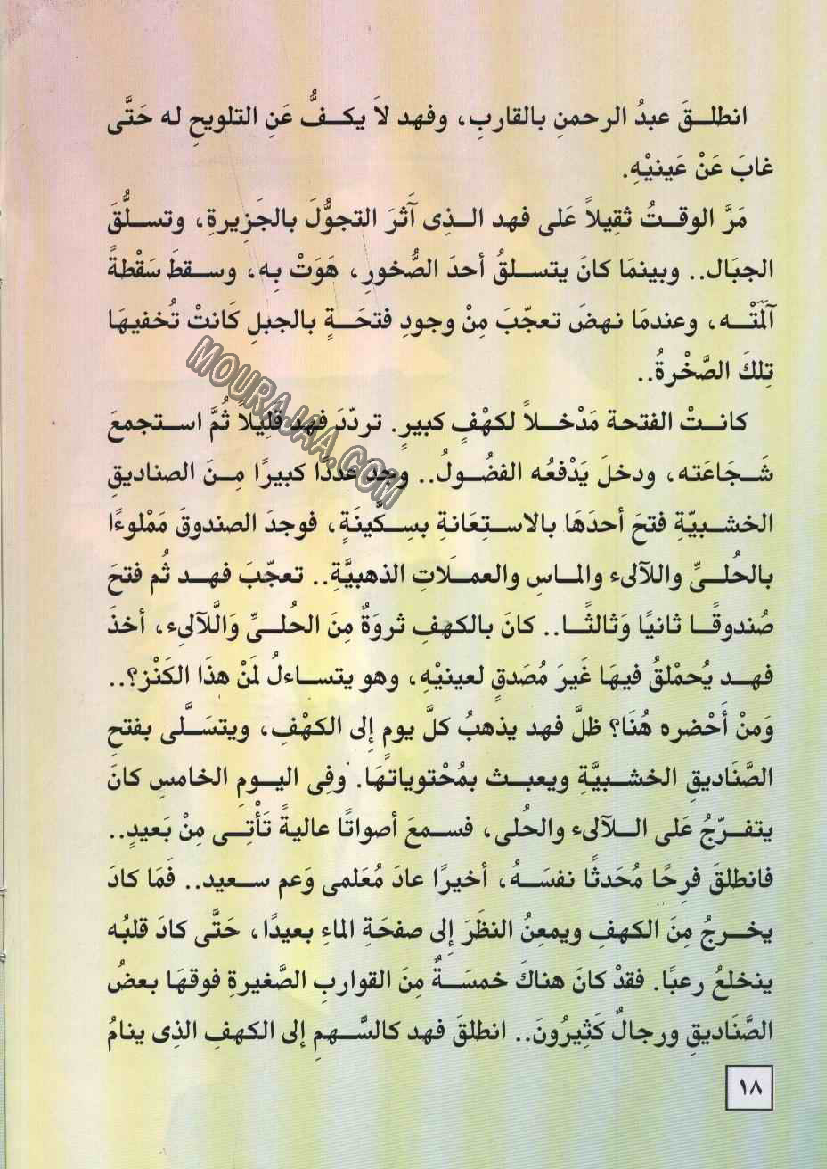 انطلقَ عبدُ الرحمنِ بالقاربِ، وفهد لاَ يكفُّ عَنِ التلويحِ له حَتَّى
غابَ عَنْ عَينيْهِ.
مَرَّ الوقتُ ثقِيلاً عَلى فهد الذِى آَثرَ التجوُّلَ بالجَزِيرةِ، وتسلُّقَ
الجبَال.. وبينمَا كانَ يتسلقُ أحدَ الصُّخورِ، هَوَتْ بِه، وسقطَ سَقْطةً
آلَمَتْه، وعندمَا نهضَ تعجّبَ مِنْ وجودِ فتحَةٍ بالجبلِ كَانتْ تُخفيهَا
تِلكَ الصَّخْرةُ..
كانتْ الفتحة مَدْخلاً لكهْفٍ كبيرٍ. تردّدَ فهد قلِيلاً ثُمَّ استجمعَ
شَجَاعَته، ودخلَ يَدْفعُه الفضُولُ.. وجد عددًا كبيرًا مِنَ الصناديقِ
الخشبيّةِ فتحَ أحدَهَا بالاستِعَانةِ بسِكِّينَةٍ، فوجدَ الصندوقَ مَمْلوءًا
بالحُلىِّ واللآلىء والماسِ والعملَاتِ الذهبيَّةِ.. تعجّبَ فهد ثُم فتحَ
صُندوقًا ثانيًا وَثالثًا.. كانَ بالكهفِ ثروَةٌ مِنَ الحُلىِّ وَاللَّآلىء، أخذَ
فهد يُحمْلقُ فيهَا غَيرَ مُصَدقٍ لعينيْهِ، وهو يتساءلُ لمَنْ هذَا الكَنْز؟..
وَمنْ أَحْضره هُنَا؟ ظلَّ فهد يذهبُ كلَّ يومٍ إلى الكهْفِ، ويتسَلَّى بفتحِ
الصَّنَاديقِ الخشبيَّةِ ويعبث بمُحْتوياتهَا. وفِى اليومِ الخامسِ كانَ
يتفرّجُ عَلى اللآلىء والحُلى، فسمعَ أصواتًا عاليةً تَأْتِى مِنْ بَعيدٍ..
فانطلقَ فرِحًا مُحَدثًا نفسَهُ، أخيرًا عادَ مُعَلمى وَعم سعيد.. فَمَا كادَ
يخرجُ مِنَ الكهفِ ويمعِنُ النظَرَ إلى صفحَةِ الماءِ بعيدًا، حَتَّى كادَ قلبُه
ينخلعُ رعبًا. فقدْ كانَ هناكَ خمسَةٌ مِنَ القواربِ الصَّغيرةِ فوقهَا بعضُ
الصَّنَاديقِ ورجالٌ كَثِيرُونَ.. انطلقَ فهد كالسَّهمِ إلى الكهفِ الذِى ينامُ
١٨
MOURAJAA.COM